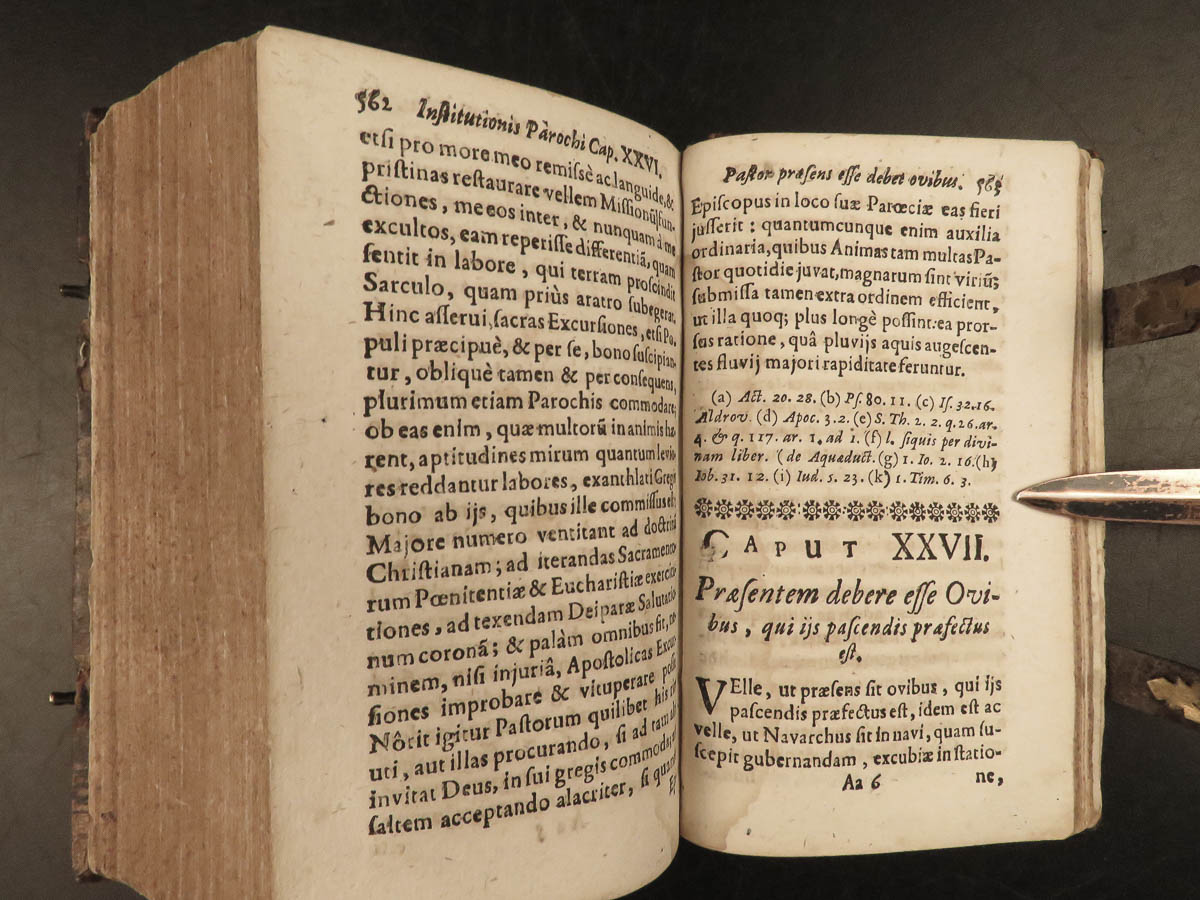 562 Institutionis Parochi Cap. XXVI.
etsi pro more meo remissè ac languide, &
pristinas restaurare vellem Missionũ fun-
ctiones, me eos inter, & nunquam à me
excultos, eam reperisse differentiã, quam
sentit in labore, qui terram proscindit
Sarculo, quam priùs aratro subegerat,
Hinc asserui, sacras Excursiones, etsi Po-
puli præcipuè, & per se, bono suscipian-
tur, obliquè tamen & per consequens,
plurimum etiam Parochis commodare;
ob eas enim, quæ multorũ in animis hæ-
rent, aptitudines mirum quantum levio-
res reddantur labores, exanthlati Gregis
bono ab ijs, quibus ille commissus est;
Majore numero ventitant ad doctrinã
Christianam; ad iterandas Sacramento-
rum Pœnitentiæ & Eucharistiæ exercita-
tiones, ad texendam Deiparæ Salutatio-
num coronã; & palàm omnibus fit, ne-
minem, nisi injuriâ, Apostolicas Excur-
siones improbare & vituperare posse
Nôrit igitur Pastorum quilibet his
uti, aut illas procurando, si ad tam
invitat Deus, in sui gregis commodum,
saltem acceptando alacriter, si quando
Pastor præsens esse debet ovibus. 563
Episcopus in loco suæ Parœciæ eas fieri
jusserit: quantumcunque enim auxilia
ordinaria, quibus Animas tam multas Pa-
stor quotidie juvat, magnarum sint viriũ;
submissa tamen extra ordinem efficient,
ut illa quoq; plus longè possint: ea pror-
sus ratione, quâ pluvijs aquis augescen-
tes fluvij majori rapiditate feruntur.
(a) Act. 20. 28. (b) Ps. 80. 11. (c) Is. 32. 16.
Aldrov. (d) Apoc. 3. 2. (e) S. Th. 2. 2. q. 26. ar.
4. & q. 117. ar. 1. ad 1. (f) l. siquis per divi-
nam liber. (de Aquæduct. (g) 1. Io. 2. 16. (h)
Iob. 31. 12. (i) Iud. 5. 23. (k) 1. Tim. 6. 3.
CAPUT XXVII.
Præsentem debere esse Ovi-
bus, qui ijs pascendis præfectus
est.
VElle, ut præsens sit ovibus, qui ijs
pascendis præfectus est, idem est ac
velle, ut Navarchus sit in navi, quam su-
scepit gubernandam, excubiæ in statio-
Aa 6 ne,